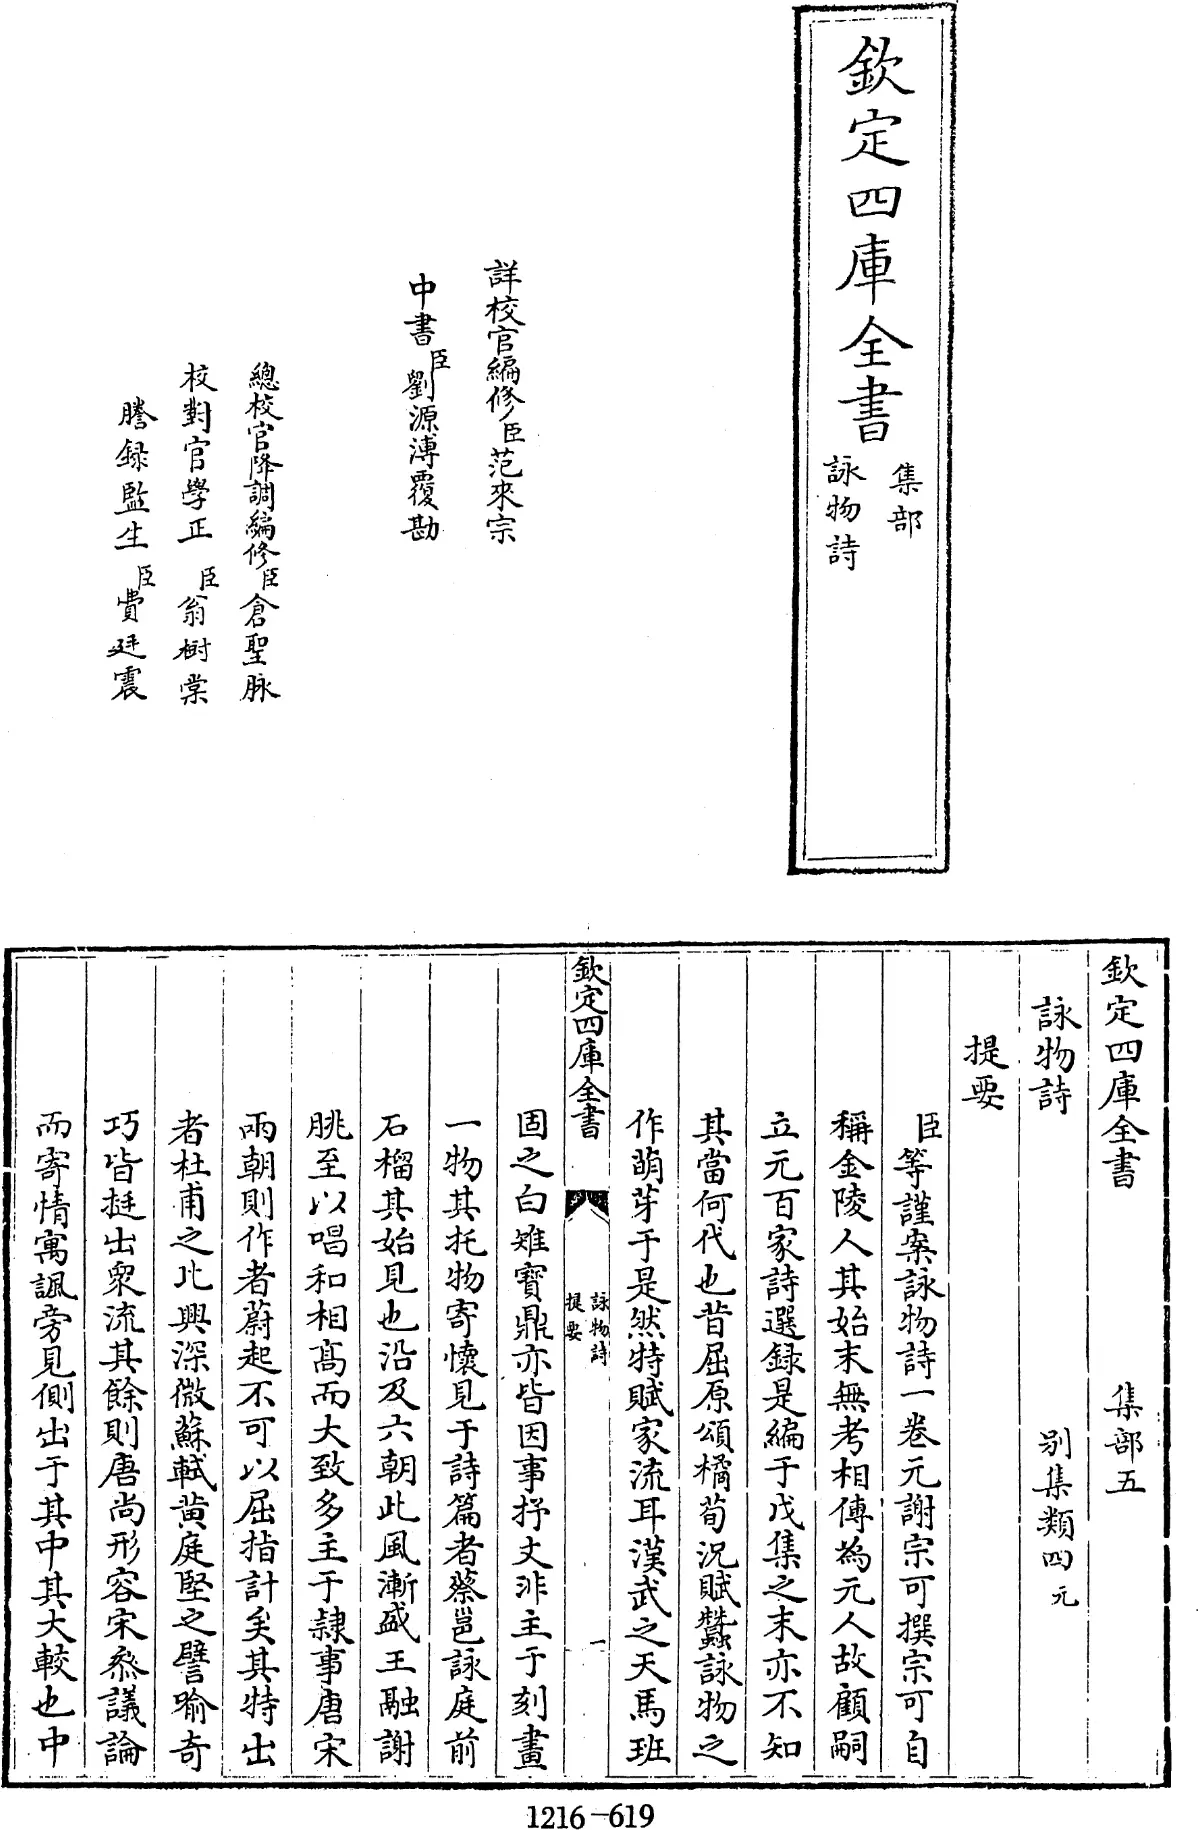 欽定四庫全書
集部
詠物詩
詳校官編修臣范來宗
中書臣劉源溥覆勘
總校官降調編修臣倉聖脉
校對官學正臣翁樹棠
謄録監生臣費廷震
欽定四庫全書 集部五
詠物詩 别集類四元
提要
臣等謹案詠物詩一卷元謝宗可撰宗可自
稱金陵人其始末無考相傳為元人故顧嗣
立元百家詩選録是編于戊集之末亦不知
其當何代也昔屈原頌橘荀況賦蠶詠物之
作萌芽于是然特賦家流耳漢武之天馬班
欽定四庫全書
詠物詩
提要
一
固之白雉寳鼎亦皆因事抒文非主于刻畫
一物其托物寄懷見于詩篇者蔡邕詠庭前
石榴其始見也沿及六朝此風漸盛王融謝
朓至以唱和相髙而大致多主于隸事唐宋
兩朝則作者蔚起不可以屈指計矣其特出
者杜甫之比興深微蘇軾黄庭堅之譬喻奇
巧皆挺出衆流其餘則唐尚形容宋叅議論
而寄情寓諷旁見側出于其中其大較也中
1216-619